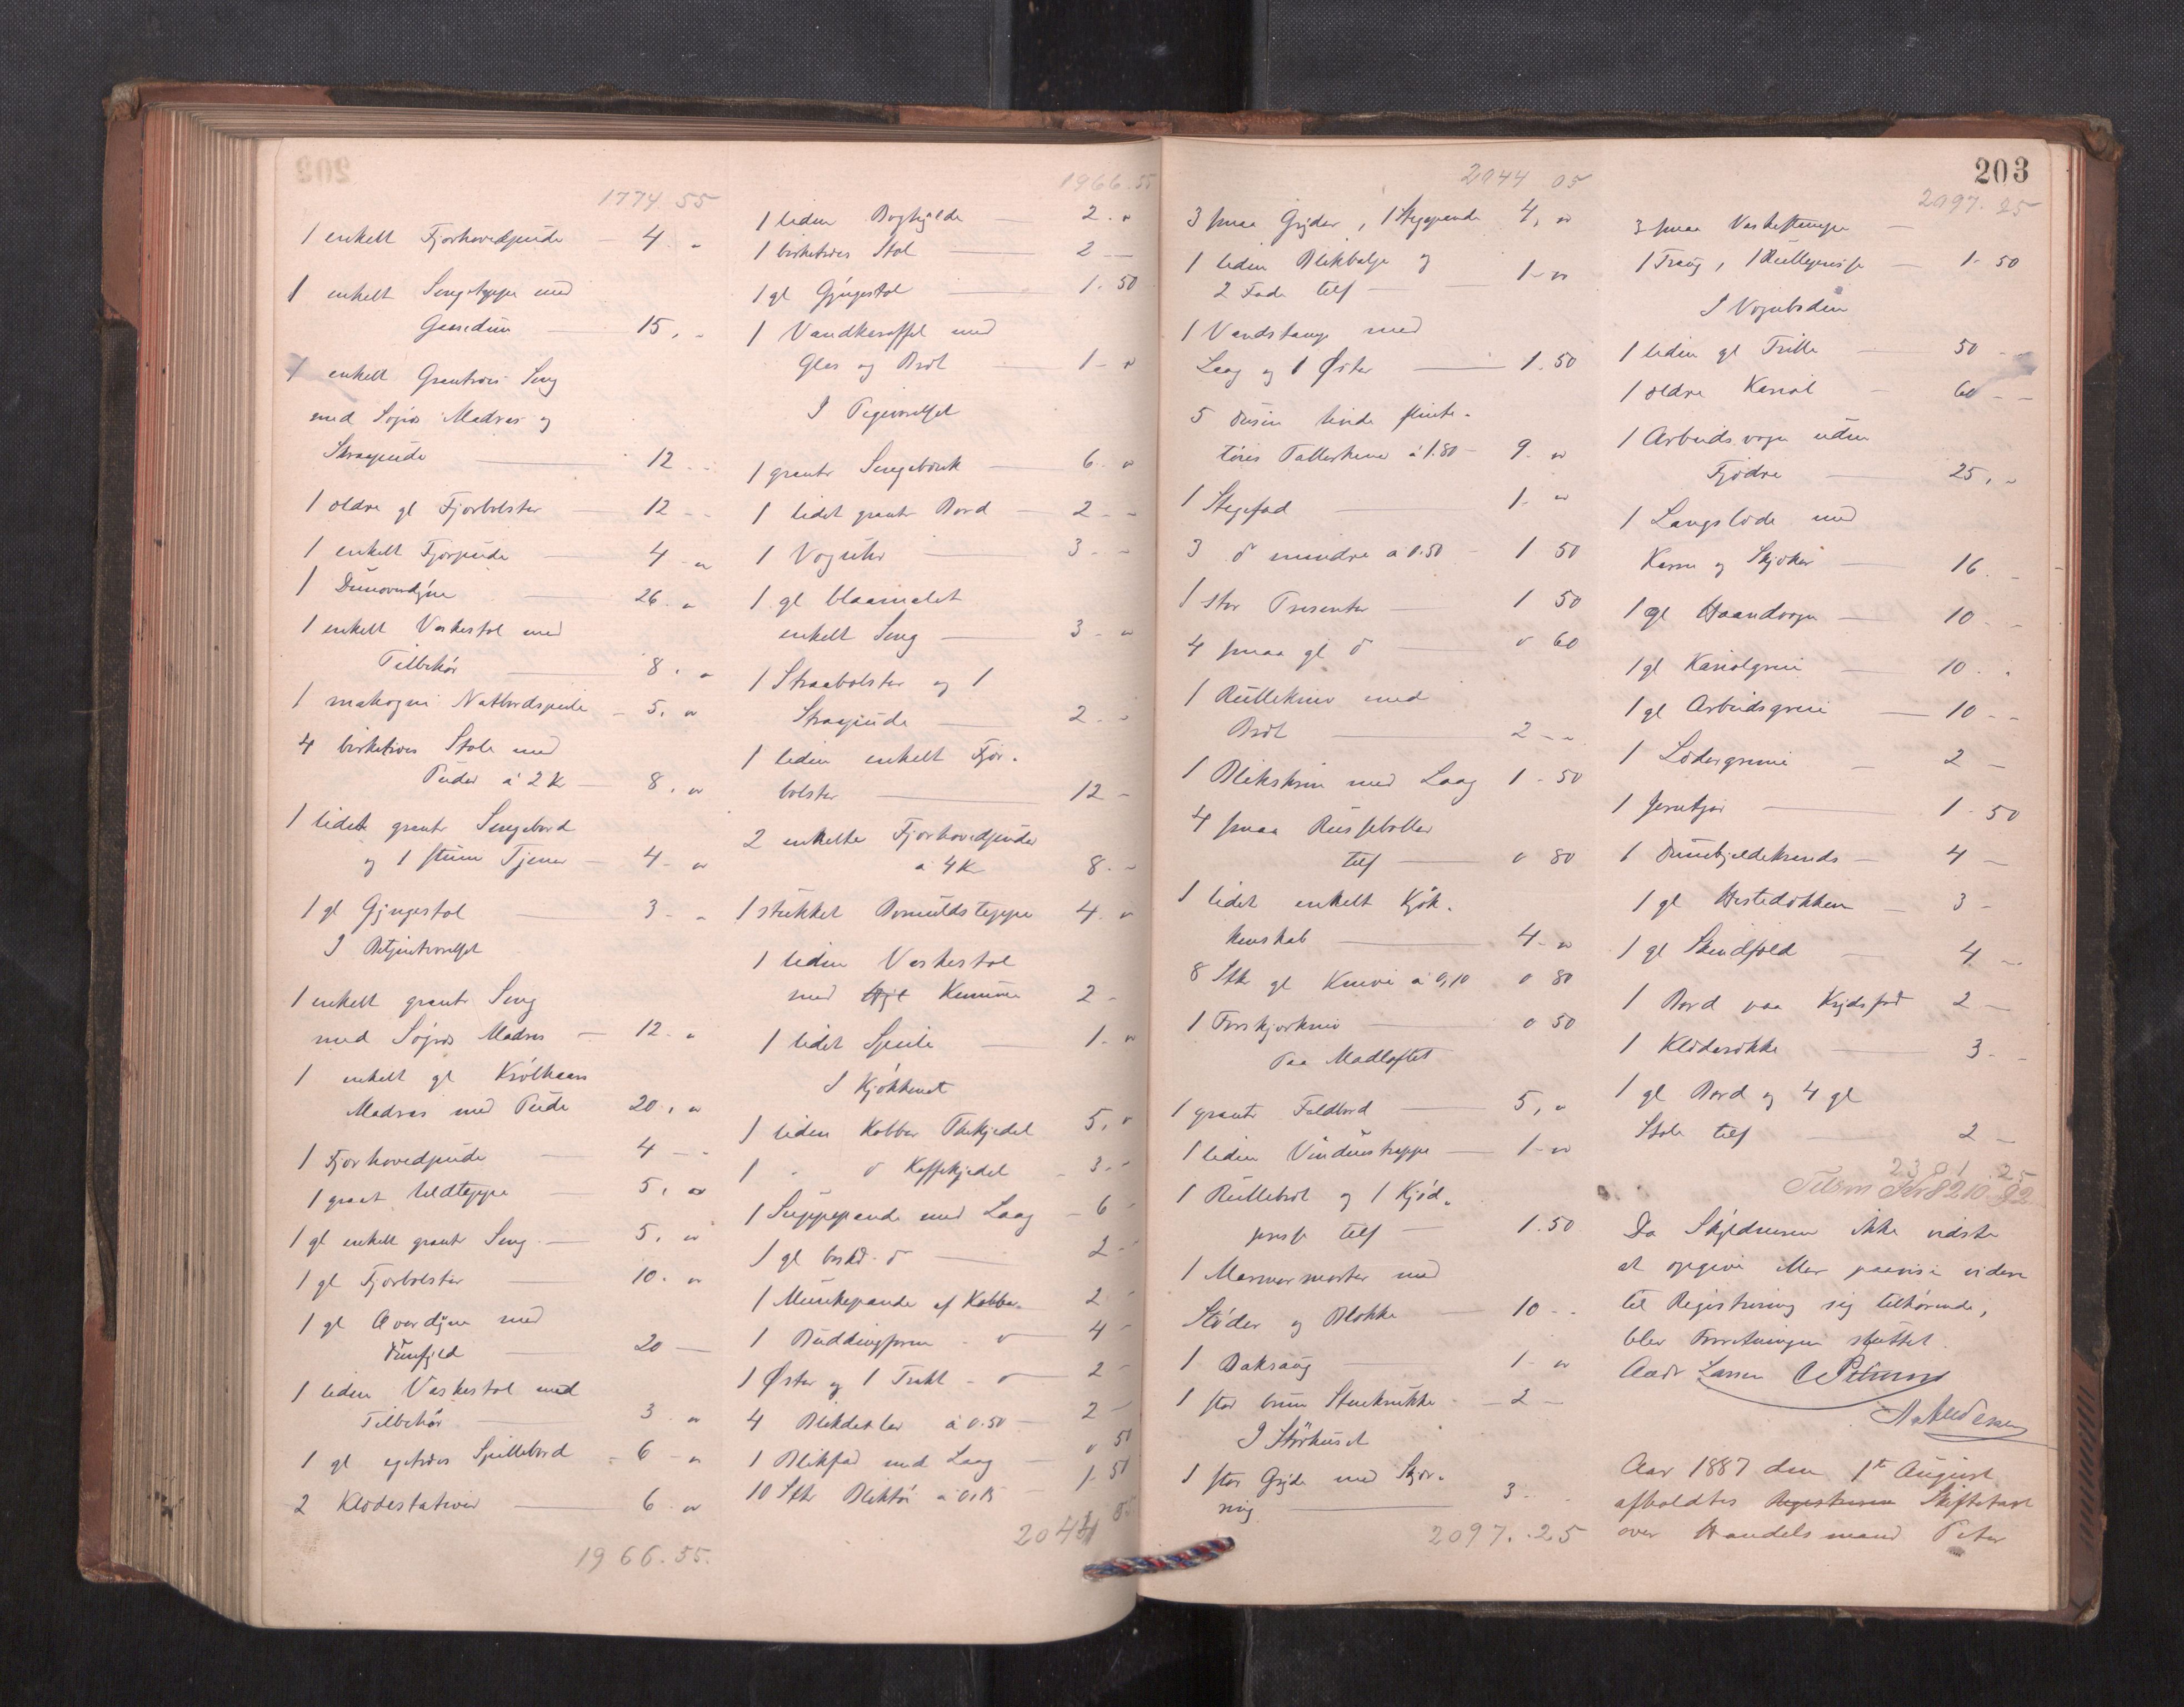 1774 55
1 enkelt Fjørhovedpude 4 "
1 enkelt Sengetæppe med
Gaasedun 15, "
1 enkelt Grantræs Seng
med Søgræs Madras og
Straapude 12 "
1 ældre gl Fjørbolster 12 "
1 enkelt Fjørpude 4 "
1 Dunoverdyne 26 "
1 enkelt Vaskestol med
Tilbehør 8, "
1 mahogni Natbordspeile 5, "
4 birketræs Stole med
Puder à 2 Kr 8, "
1 lidet grantr Sengebord
og 1 stum Tjener 4 "
1 gl Gyngestol 3 "
I Betjentværelset
1 enkelt grantr Seng
med Søgræs Madras 12 "
1 enkelt gl Krølhaars
Madras med Pude 20, "
1 Fjørhovedpude 4 "
1 graat Uldtæppe 5, "
1 gl enkelt grantr Seng 5, "
1 gl Fjørbolster 10 "
1 gl Overdyne med
Dunfyld 20
1 liden Vaskestol med
Tilbehør 3 "
1 gl egetræs Spillebord 6 "
2 Klædestativer 6 "
1966.55.
1966.55
1 liden Boghylde 2 "
1 birketræs Stol 2
1 gl Gyngestol 1.50
1 Vandkaraffel med
Glas og Bræt 1 "
I Pigeværelset
1 grantr Sengebænk 6 "
1 lidet grantr Bord 2 "
1 Vognuhr 3 "
1 gl blaamalet
enkelt Seng 3 "
1 Straabolster og 1
Straapude 2 "
1 liden enkelt Fjør-
bolster 12
2 enkelte Fjørhovedpuder
à 4 Kr 8
1 stukket Bomuldstæppe 4 "
1 liden Vaskestol
med Kumme 2
1 lidet Speile 1 "
I Kjøkkenet
1 liden Kobber Thekjedel 5, "
1 " d Kaffekjedel 3
1 Suppepande med Laag 6
1 gl d 2
1 Munkepande af Kobber 2
1 Buddingform d 4
1 Øster og 1 Trakt d 2
4 Blik à 0.50 2
1 Blikfad med Laag 0 50
10 Stkr Bliktøi à 0,15 1.50
2044 05
203
2044 05
3 smaa Gryder, 1 Stegepande 4, "
1 liden Blikbalje og
2 Fade tils 1 "
1 Vandstampe med
Laag og 1 Øster 1.50
5 Dusin hvide stente-
tøies Tallerkener à 1.80 9 "
1 Stegefad 1 "
3 d mindre à 0.50 1 50
1 stor Presenter 1 50
4 smaa gl d 0 60
1 Rullekniv med
Bræt 2
1 Blikskrin med Laag 1.50
4 smaa
tils 0 80
1 lidet enkelt Kjøk-
kenskab 4 "
8 Stkr gl Knive à 0,10 0 80
1 Forskjærkniv 0 50
Paa Madloftet
1 grantr Foldbord 5, "
1 liden Vindustrappe 1 "
1 Rullebræt og 1 Kjød-
presse tils 1.50
1 Marmormorter med
Støder og Blokke 10
1 Baksaug 1 "
1 stor brun Stenkrukke 2
I Størhuset
1 stor Gryde med Skjør-
ring 3
2097.25
2097.25
3 smaa Vaskestampe
1 Traug, 1 1.50
I Vognboden
1 liden gl Trille 50
1 ældre Kariol 60
1 Arbeidsvogn uden
Fjædre 25, "
1 Langslæde med
Karm og Skjækar 16
1 gl Haandvogn 10
1 gl Kariolgreie 10
1 gl Arbeidsgreie 10
1 Lædergrime 2
1 Jernkjør 1.50
1 Dumbjeldekrands 4
1 gl Hestedækken 3
1 gl Skindfæld 4
1 Bord paa Krydsfod 2
1 Klæderække 3
1 gl Bord og 4 gl
Stole tils 2
2301 25
Tilsm Kr 8210.92
Da Skyldneren ikke vidste
at opgive eller paavise videre
til Registrering sig tilhørende,
blev Forretningen sluttet.
Andr Larsen C Petersen
A Andersen
Aar 1887 den 1te August
afholdtes Registrering Skiftetaxt
over Handelsmand Peter